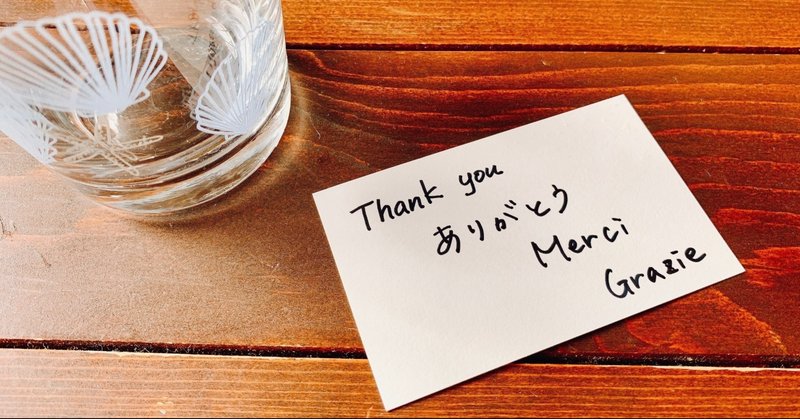 Thank you
ありがとう
Merci
Grazie